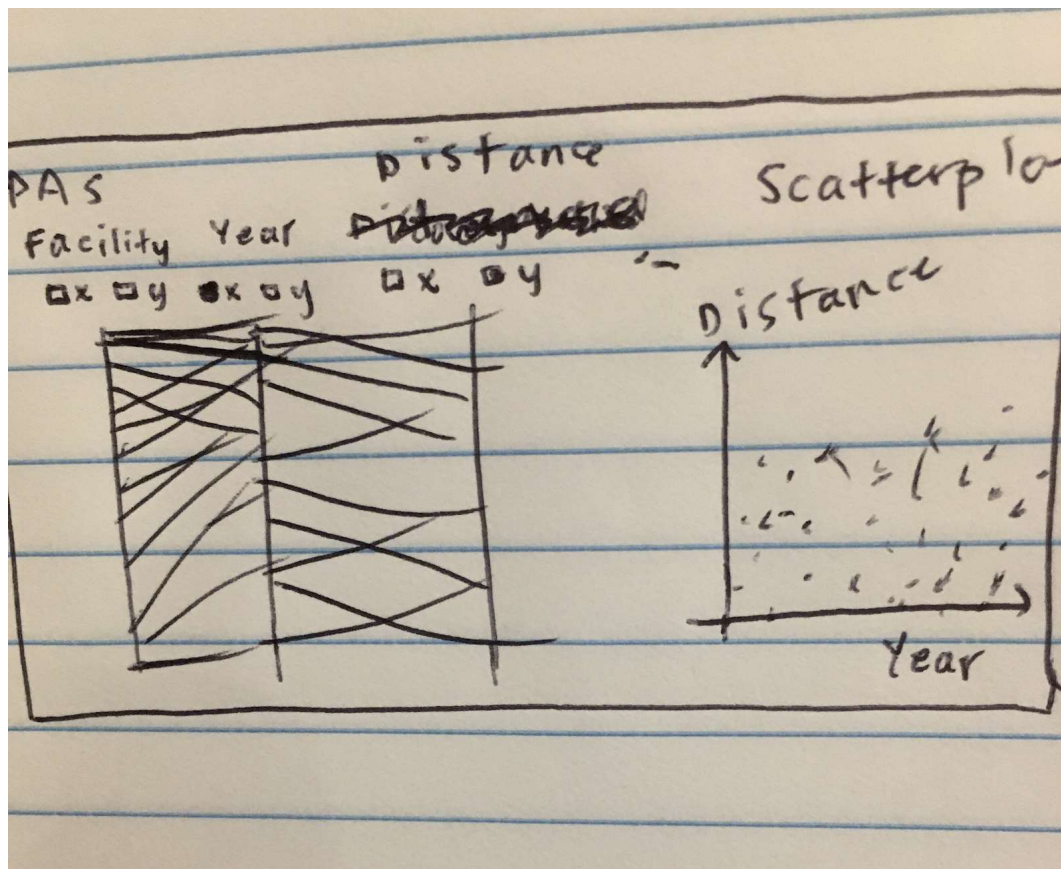 Distance
PAs
Scatterplo
Facility Year
x y x y x y
Distance
Year